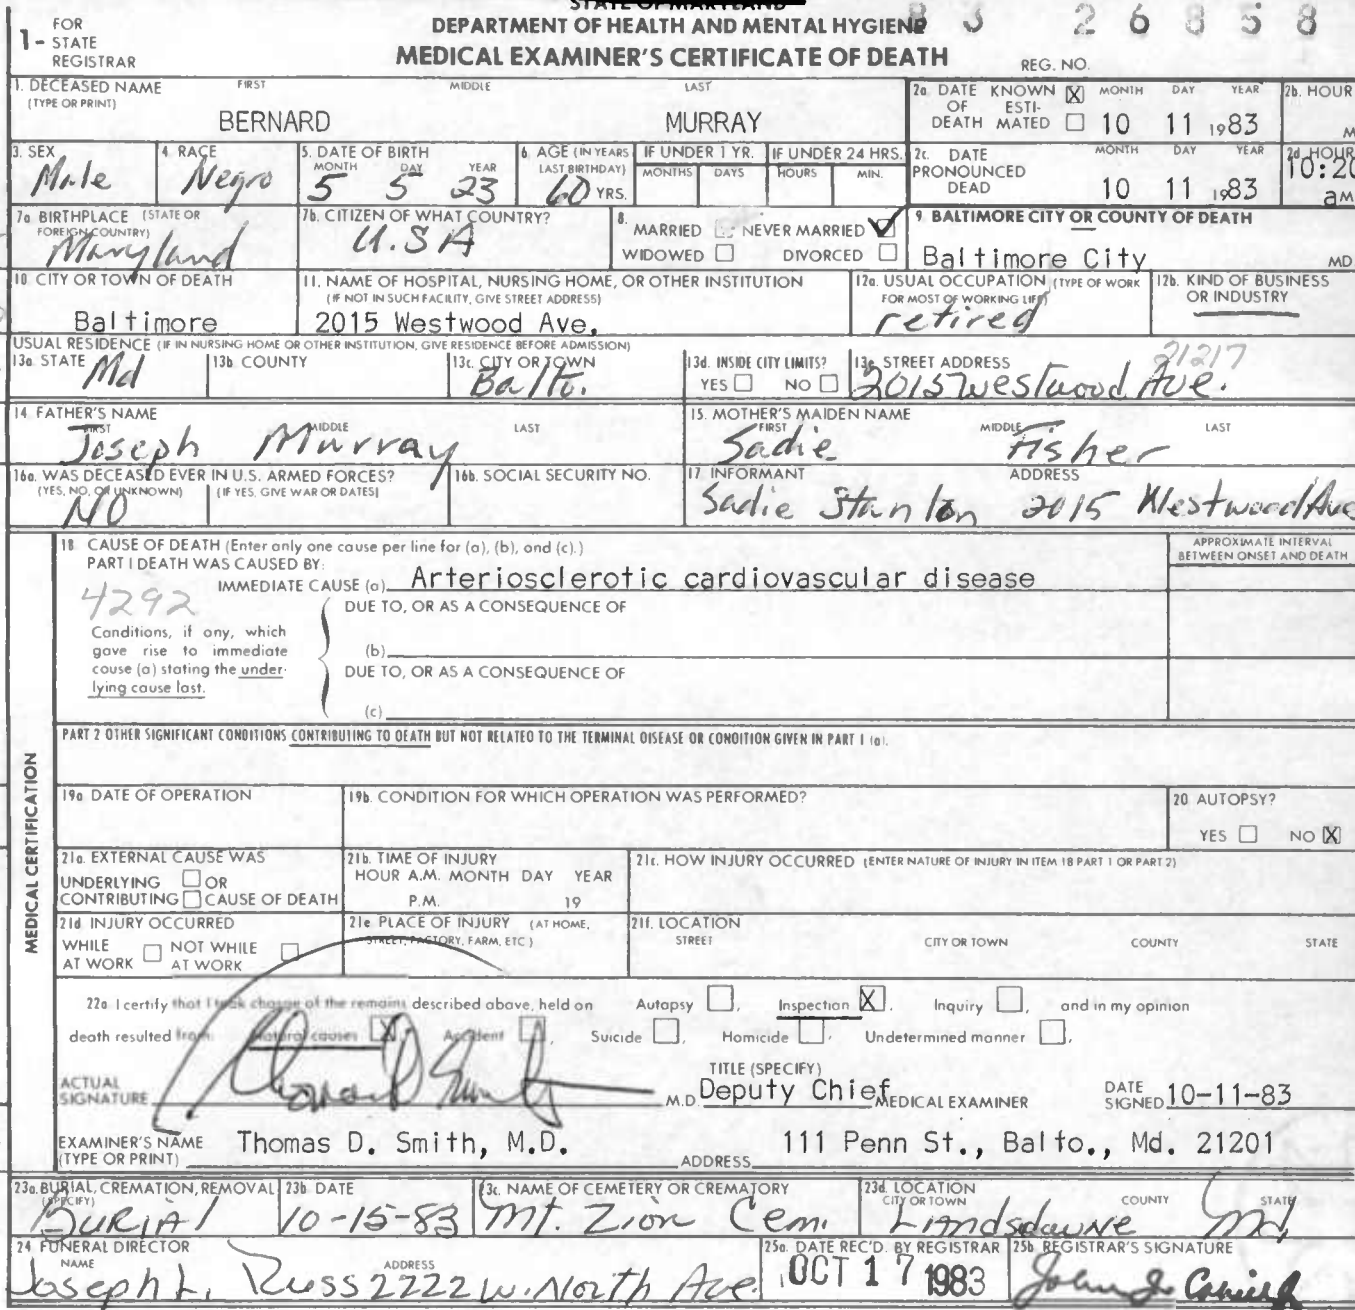 STATE OF MARYLAND
DEPARTMENT OF HEALTH AND MENTAL HYGIENE
MEDICAL EXAMINER'S CERTIFICATE OF DEATH
1- FOR STATE REGISTRAR
83 26858
REG. NO.
1. DECEASED NAME (TYPE OR PRINT) FIRST MIDDLE LAST
BERNARD MURRAY
2a. DATE OF DEATH KNOWN X ESTIMATED MONTH DAY YEAR
10 11 1983
2b. HOUR M
3. SEX
Male
4. RACE
Negro
5. DATE OF BIRTH MONTH DAY YEAR
5 5 23
6. AGE (IN YEARS LAST BIRTHDAY)
60 YRS.
IF UNDER 1 YR. MONTHS DAYS
IF UNDER 24 HRS. HOURS MIN.
2c. DATE PRONOUNCED DEAD MONTH DAY YEAR
10 11 1983
2d. HOUR
10:20 aM
7a. BIRTHPLACE (STATE OR FOREIGN COUNTRY)
Maryland
7b. CITIZEN OF WHAT COUNTRY?
U.S A
8. MARRIED NEVER MARRIED ✓
WIDOWED DIVORCED
9. BALTIMORE CITY OR COUNTY OF DEATH
Baltimore City MD
10. CITY OR TOWN OF DEATH
Baltimore
11. NAME OF HOSPITAL, NURSING HOME, OR OTHER INSTITUTION
(IF NOT IN SUCH FACILITY, GIVE STREET ADDRESS)
2015 Westwood Ave.
12a. USUAL OCCUPATION (TYPE OF WORK FOR MOST OF WORKING LIFE)
retired
12b. KIND OF BUSINESS OR INDUSTRY
USUAL RESIDENCE (IF IN NURSING HOME OR OTHER INSTITUTION, GIVE RESIDENCE BEFORE ADMISSION)
13a. STATE
Md
13b. COUNTY
13c. CITY OR TOWN
Balto.
13d. INSIDE CITY LIMITS?
YES NO
13e. STREET ADDRESS
21217
2015 Westwood Ave.
14. FATHER'S NAME FIRST MIDDLE LAST
Joseph Murray
15. MOTHER'S MAIDEN NAME FIRST MIDDLE LAST
Sadie Fisher
16a. WAS DECEASED EVER IN U.S. ARMED FORCES?
(YES, NO, OR UNKNOWN) (IF YES, GIVE WAR OR DATES)
NO
16b. SOCIAL SECURITY NO.
17. INFORMANT ADDRESS
Sadie Stanton 2015 Westwood Ave
MEDICAL CERTIFICATION
18. CAUSE OF DEATH (Enter only one cause per line for (a), (b), and (c).)
APPROXIMATE INTERVAL BETWEEN ONSET AND DEATH
PART I DEATH WAS CAUSED BY:
IMMEDIATE CAUSE (a) Arteriosclerotic cardiovascular disease
4292
DUE TO, OR AS A CONSEQUENCE OF
Conditions, if any, which gave rise to immediate cause (a) stating the underlying cause last.
(b)
DUE TO, OR AS A CONSEQUENCE OF
(c)
PART 2 OTHER SIGNIFICANT CONDITIONS CONTRIBUTING TO DEATH BUT NOT RELATED TO THE TERMINAL DISEASE OR CONDITION GIVEN IN PART I (a).
19a. DATE OF OPERATION
19b. CONDITION FOR WHICH OPERATION WAS PERFORMED?
20. AUTOPSY?
YES NO X
21a. EXTERNAL CAUSE WAS
UNDERLYING OR
CONTRIBUTING CAUSE OF DEATH
21b. TIME OF INJURY
HOUR A.M. MONTH DAY YEAR
P.M. 19
21c. HOW INJURY OCCURRED (ENTER NATURE OF INJURY IN ITEM 18 PART 1 OR PART 2)
21d. INJURY OCCURRED
WHILE AT WORK NOT WHILE AT WORK
21e. PLACE OF INJURY (AT HOME, STREET, FACTORY, FARM, ETC.)
21f. LOCATION
STREET CITY OR TOWN COUNTY STATE
22a. I certify that I took charge of the remains described above, held on Autopsy, Inspection X, Inquiry, and in my opinion
death resulted from: Natural causes X Accident, Suicide, Homicide, Undetermined manner,
ACTUAL SIGNATURE Thomas D Smith M.D.
TITLE (SPECIFY)
Deputy Chief MEDICAL EXAMINER
DATE SIGNED 10-11-83
EXAMINER'S NAME (TYPE OR PRINT) Thomas D. Smith, M.D.
ADDRESS 111 Penn St., Balto., Md. 21201
23a. BURIAL, CREMATION, REMOVAL (SPECIFY)
Burial
23b. DATE
10-15-83
23c. NAME OF CEMETERY OR CREMATORY
Mt. Zion Cem.
23d. LOCATION CITY OR TOWN COUNTY STATE
Landsdowne Md.
24. FUNERAL DIRECTOR NAME ADDRESS
Joseph L. Russ 2222 W. North Ave.
25a. DATE REC'D. BY REGISTRAR
OCT 17 1983
25b. REGISTRAR'S SIGNATURE
John J.